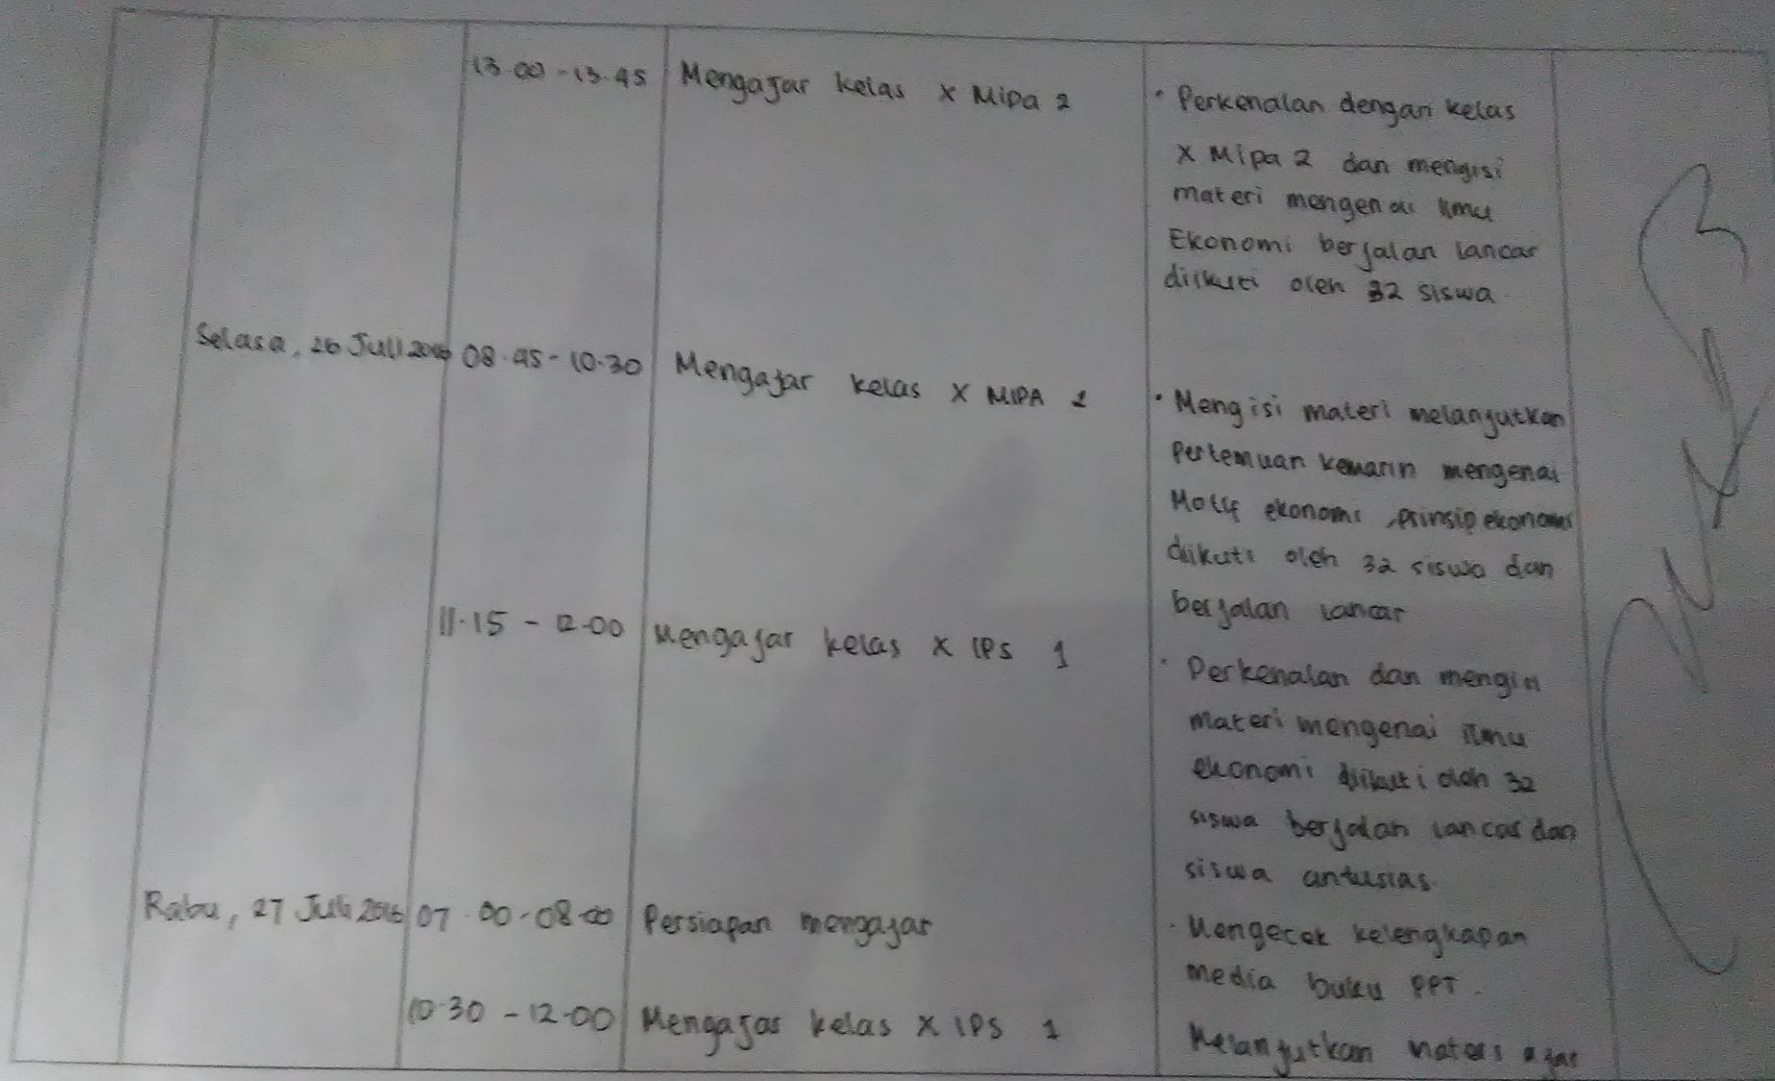 13.00 - 13.45 Mengajar kelas X Mipa 2
• Perkenalan dengan kelas
X Mipa 2 dan mengisi
materi mengenai ilmu
Ekonomi berjalan lancar
diikuti oleh 32 siswa.
Selasa, 26 Juli 2016 08.45 - 10.30 Mengajar kelas X MIPA 2
• Mengisi materi melanjutkan
Pertemuan kemarin mengenai
Motif ekonomi, prinsip ekonomi
diikuti oleh 32 siswa dan
berjalan lancar
11.15 - 12.00 Mengajar kelas X IPS 1
• Perkenalan dan mengisi
materi mengenai ilmu
ekonomi diikuti oleh 32
siswa berjalan lancar dan
siswa antusias.
Rabu, 27 Juli 2016 07.00 - 08.00 Persiapan mengajar
• Mengecek kelengkapan
media buku PPT.
10.30 - 12.00 Mengajar kelas X IPS 1
Melanjutkan materi ajar